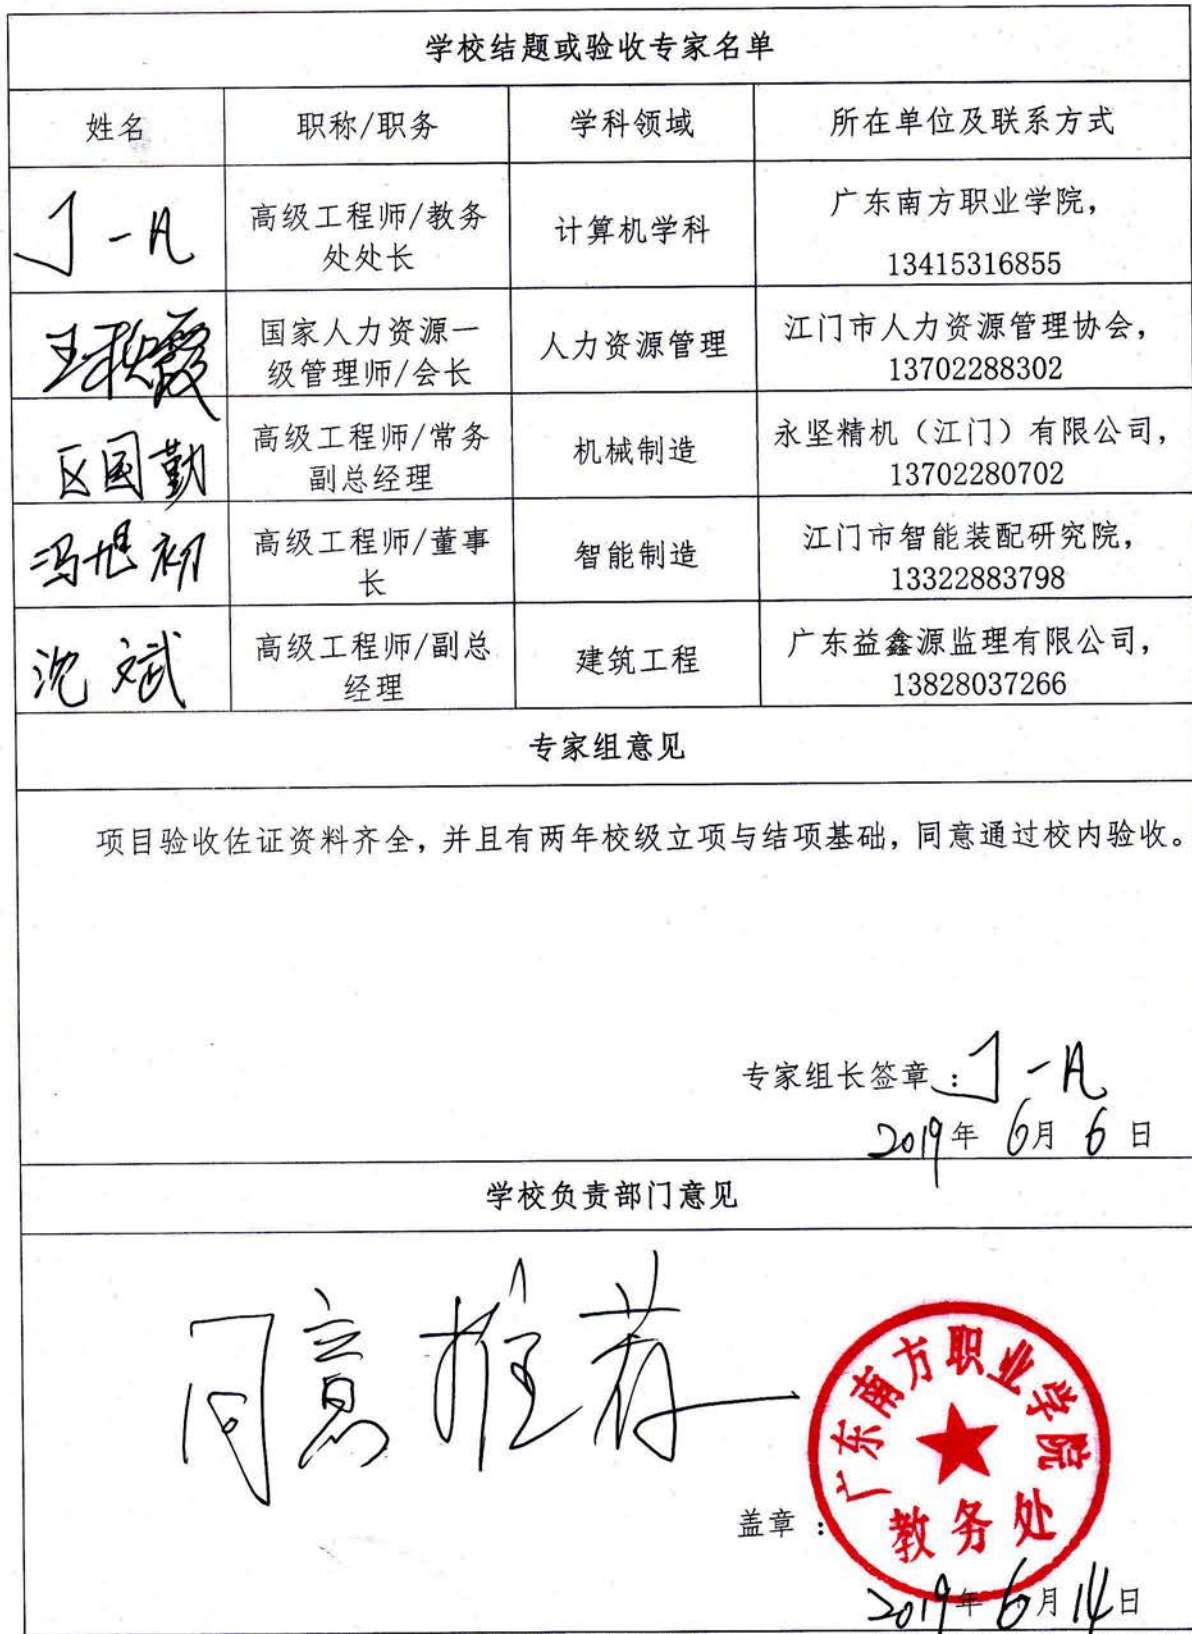 学校结题或验收专家名单
姓名 职称/职务 学科领域 所在单位及联系方式
高级工程师/教务 计算机学科 广东南方职业学院，
处处长 13415316855
国家人力资源一 人力资源管理 江门市人力资源管理协会，
级管理师/会长 13702288302
区国勤 高级工程师/常务 机械制造 永坚精机（江门）有限公司，
副总经理 13702280702
高级工程师/董事 智能制造 江门市智能装配研究院，
长 13322883798
沈斌 高级工程师/副总 建筑工程 广东益鑫源监理有限公司，
经理 13828037266
专家组意见
项目验收佐证资料齐全，并且有两年校级立项与结项基础，同意通过校内验收。
专家组长签章：
2019年 6月 6 日
学校负责部门意见
同意推荐
广东南方职业学院
教务处
盖章：
2019年 6月 14日